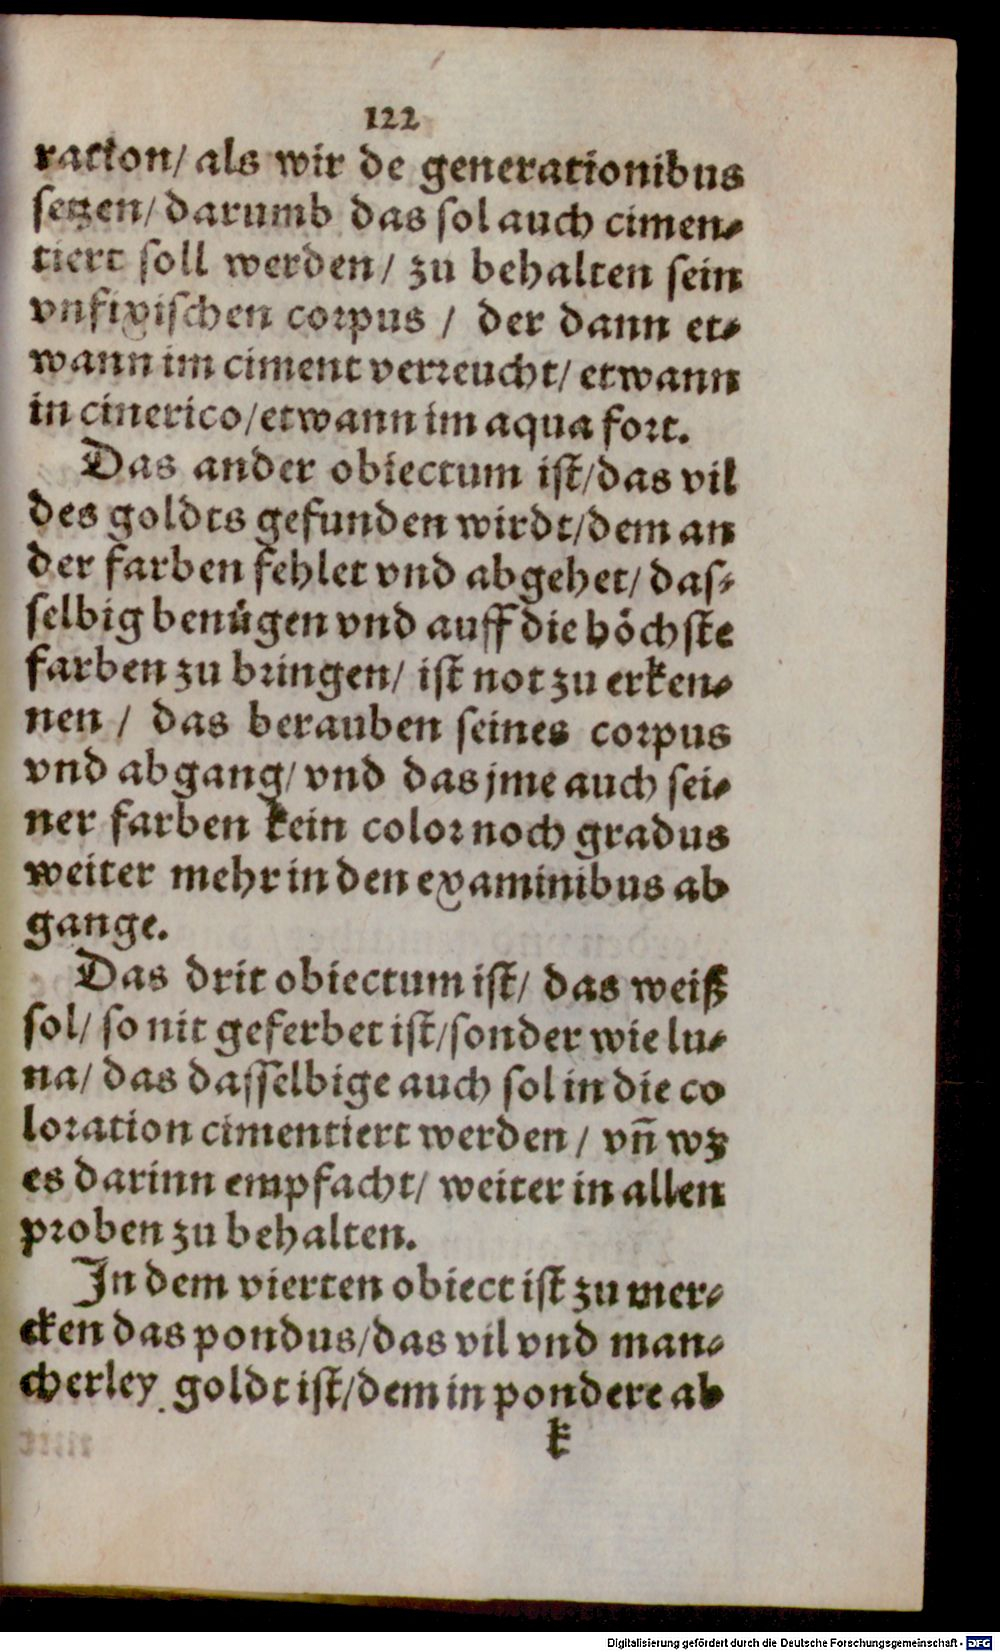 122
ration/ als wir de generationibus
setzen/ darumb das sol auch cimen⸗
tiert soll werden/ zu behalten sein
vnfixischen corpus / der dann et⸗
wann im ciment verreucht/ etwann
in cinerico/ etwann im aqua fort.
Das ander obiectum ist/ das vil
des goldts gefunden wirdt/ dem an
der farben fehlet vnd abgehet/ das⸗
selbig benügen vnd auff die höchste
farben zu bringen/ ist not zu erken⸗
nen / das berauben seines corpus
vnd abgang/ vnd das jme auch sei⸗
ner farben kein color noch gradus
weiter mehr in den examinibus ab
gange.
Das drit obiectum ist/ das weiß
sol/ so nit geferbet ist/ sonder wie lu⸗
na/ das dasselbige auch sol in die co
loration cimentiert werden / vñ wz
es darinn empfacht/ weiter in allen
proben zu behalten.
In dem vierten obiect ist zu mer⸗
cken das pondus/ das vil vnd man⸗
cherley goldt ist/ dem in pondere ab
k
Digitalisierung gefördert durch die Deutsche Forschungsgemeinschaft - DFG